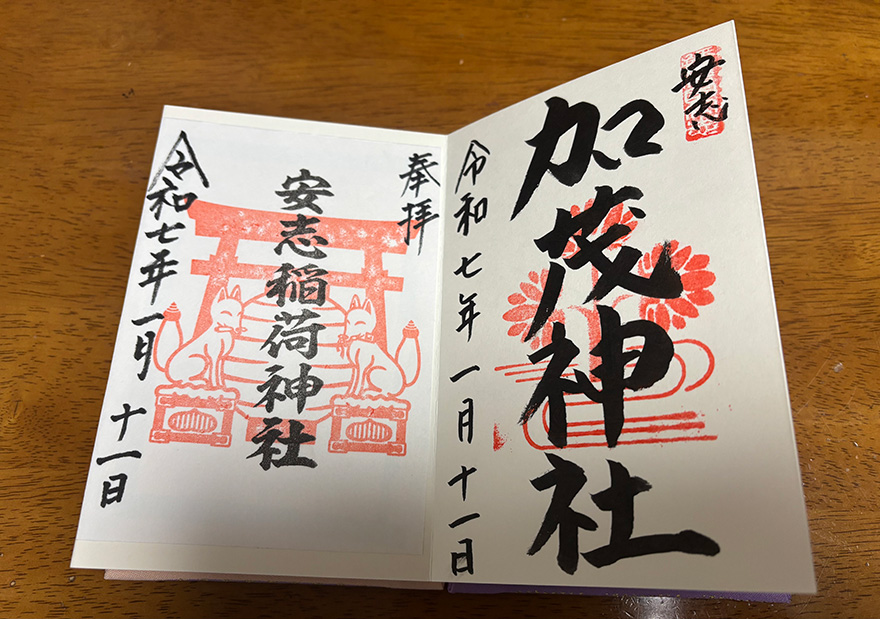 安志
加茂神社
令和七年一月十一日
奉拝
安志稲荷神社
令和七年一月十一日